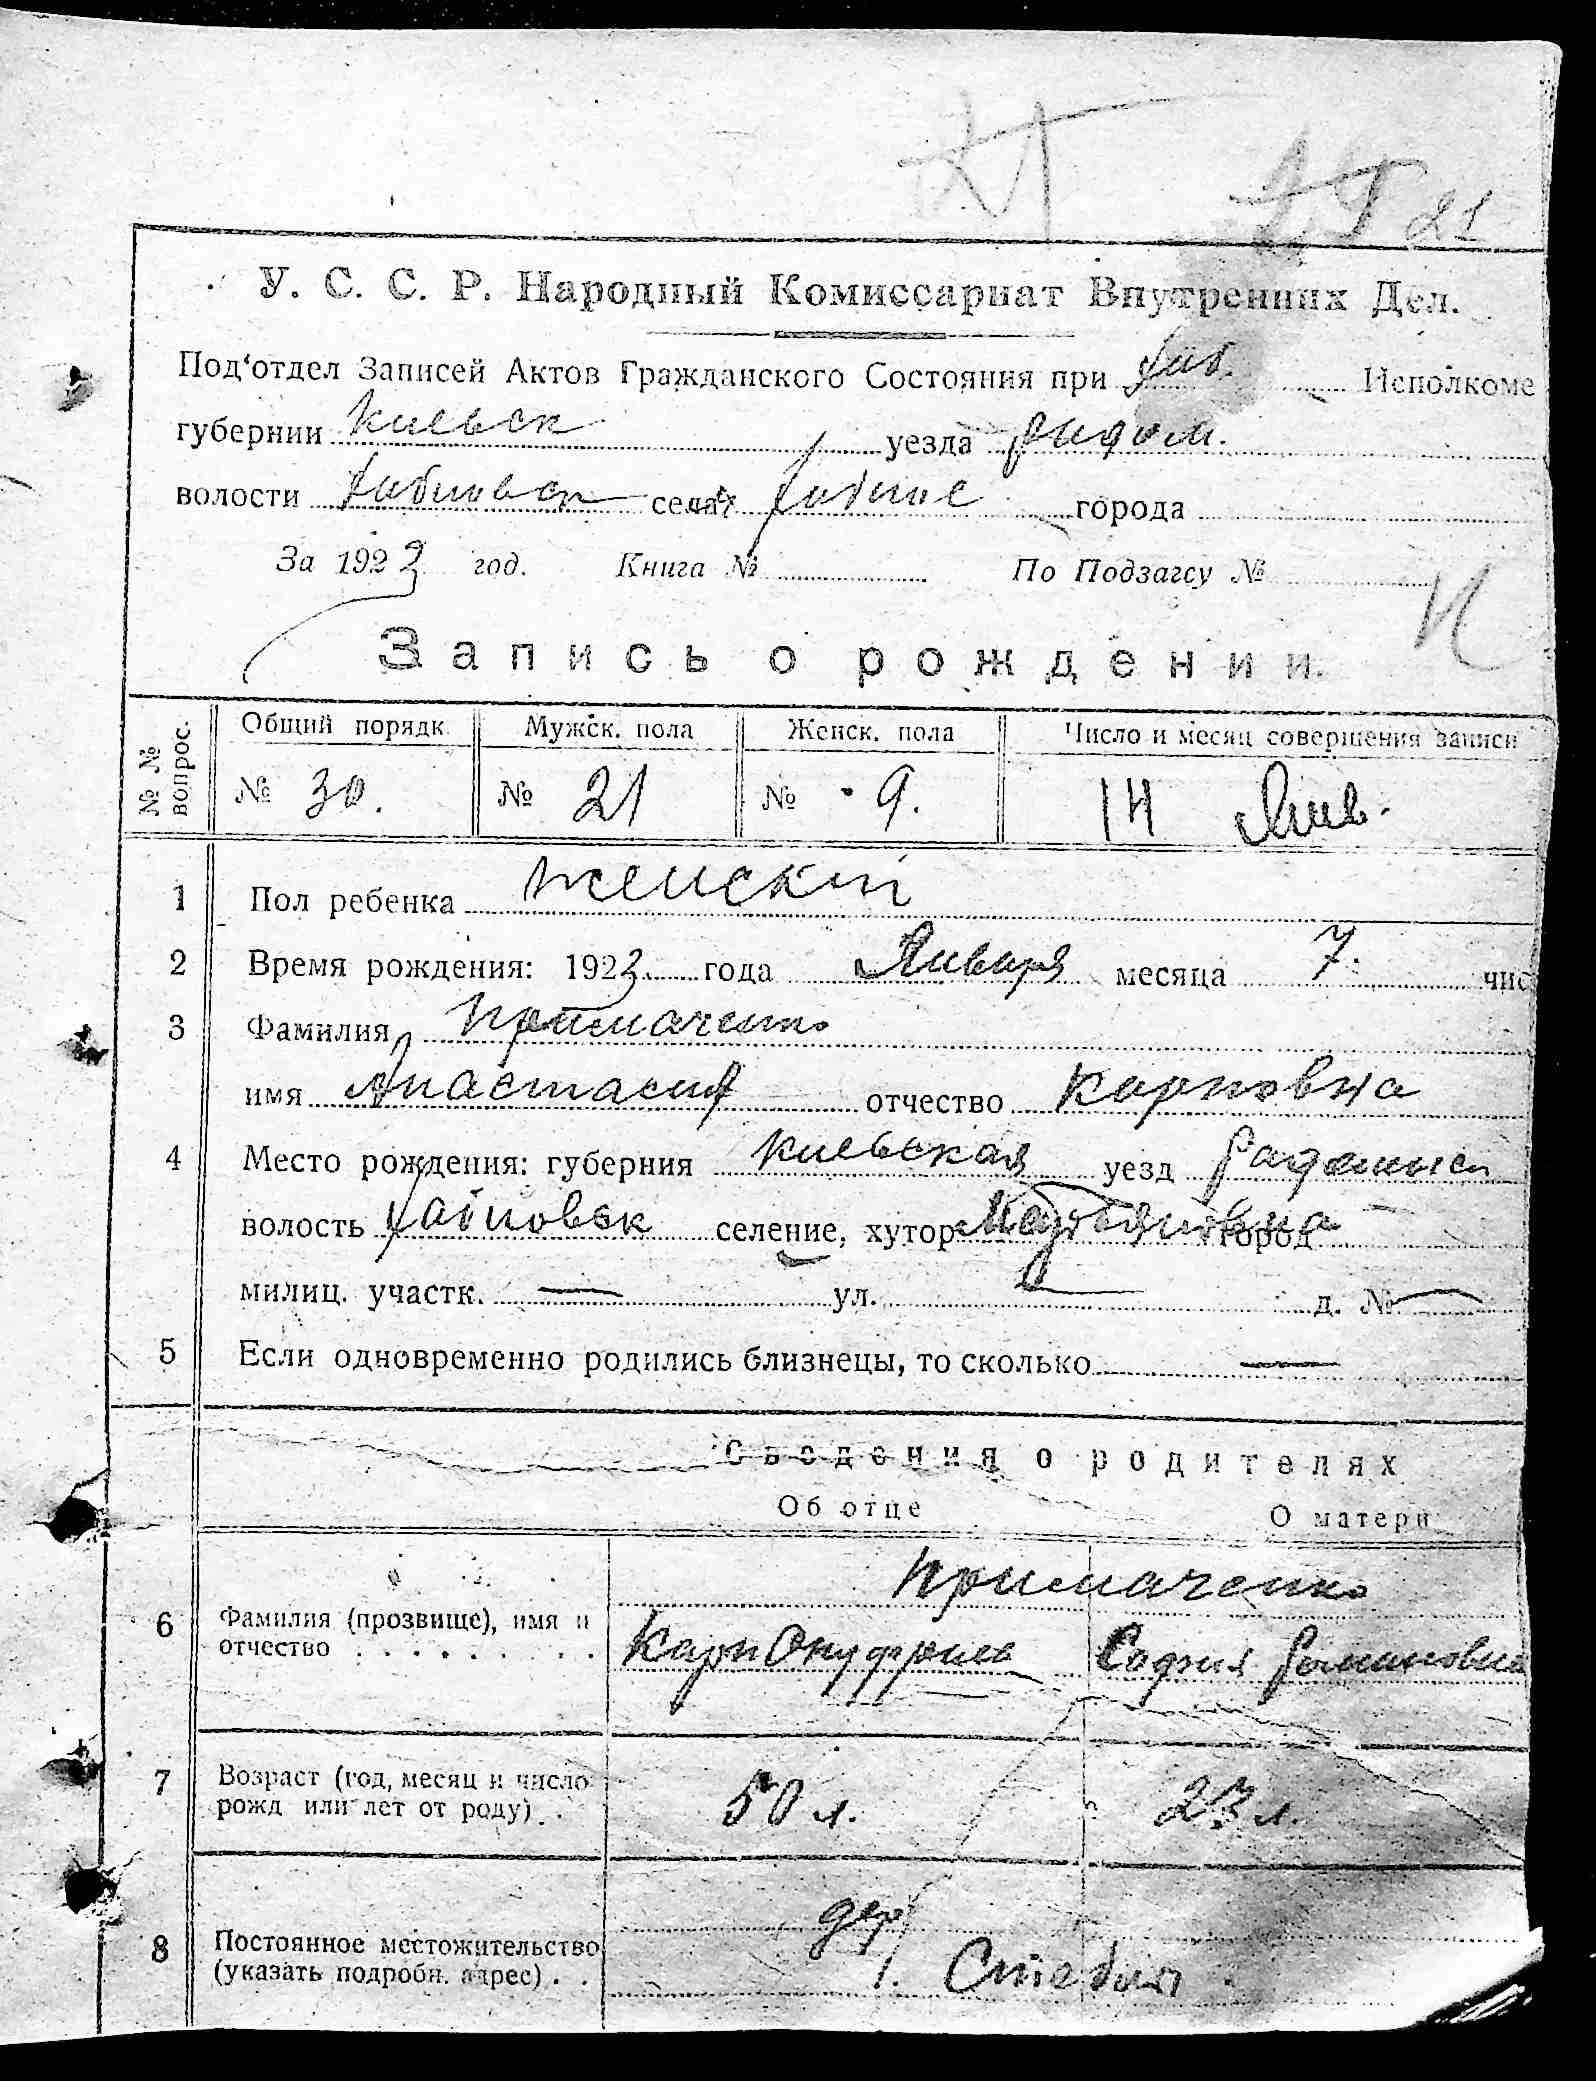 21
У. С. С. Р. Народный Комиссариат Внутренних Дел.
Под'отдел Записей Актов Гражданского Состояния при Хаб. Исполкоме
губернии Киевск уезда Радом.
волости Хабновск села Хабное города
За 1923 год. Книга № По Подзагсу №
Запись о рождении.
№ № вопрос. Общий порядк. Мужск. пола Женск. пола Число и месяц совершения записи
№ 30. № 21 № 9. 14 Янв.
1 Пол ребенка женский
2 Время рождения: 1923 года Января месяца 7. чис
3 Фамилия Примаченко
имя Анастасия отчество Карповна
4 Место рождения: губерния Киевская уезд Радомысл
волость Хабновск селение, хутор город
милиц. участк. — ул. — д. № —
5 Если одновременно родились близнецы, то сколько —
Сведения о родителях
Об отце О матери
Примаченко
6 Фамилия (прозвище), имя и
отчество . . . . . . . . Карп Онуфриев София Романовна
7 Возраст (год, месяц и число
рожд или лет от роду) . . 50 л. 23 л.
дер
8 Постоянное местожительство
(указать подробн. адрес) . .